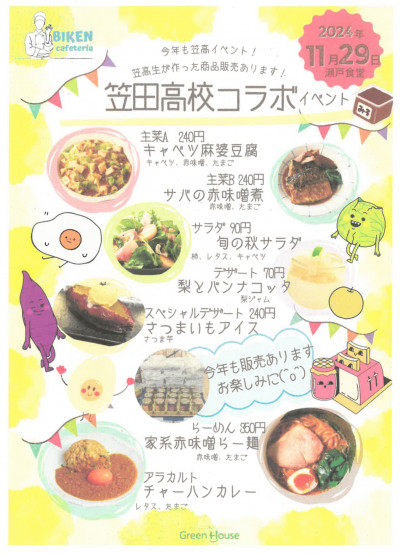 BIKEN
cafeteria
2024年
11月29日
瀬戸食堂
今年も笠高イベント！
笠高生が作った商品販売あります！
笠田高校コラボイベント
みそ
主菜A 240円
キャベツ麻婆豆腐
キャベツ、赤味噌、たまご
主菜B 240円
サバの赤味噌煮
赤味噌、たまご
サラダ 90円
旬の秋サラダ
柿、レタス、キャベツ
デザート 70円
梨とパンナコッタ
梨ジャム
スペシャルデザート 240円
さつまいもアイス
さつま芋
今年も販売あります
お楽しみに(^o^)
らーめん 350円
家系赤味噌らー麺
赤味噌、たまご
アラカルト
チャーハンカレー
レタス、たまご
Green House